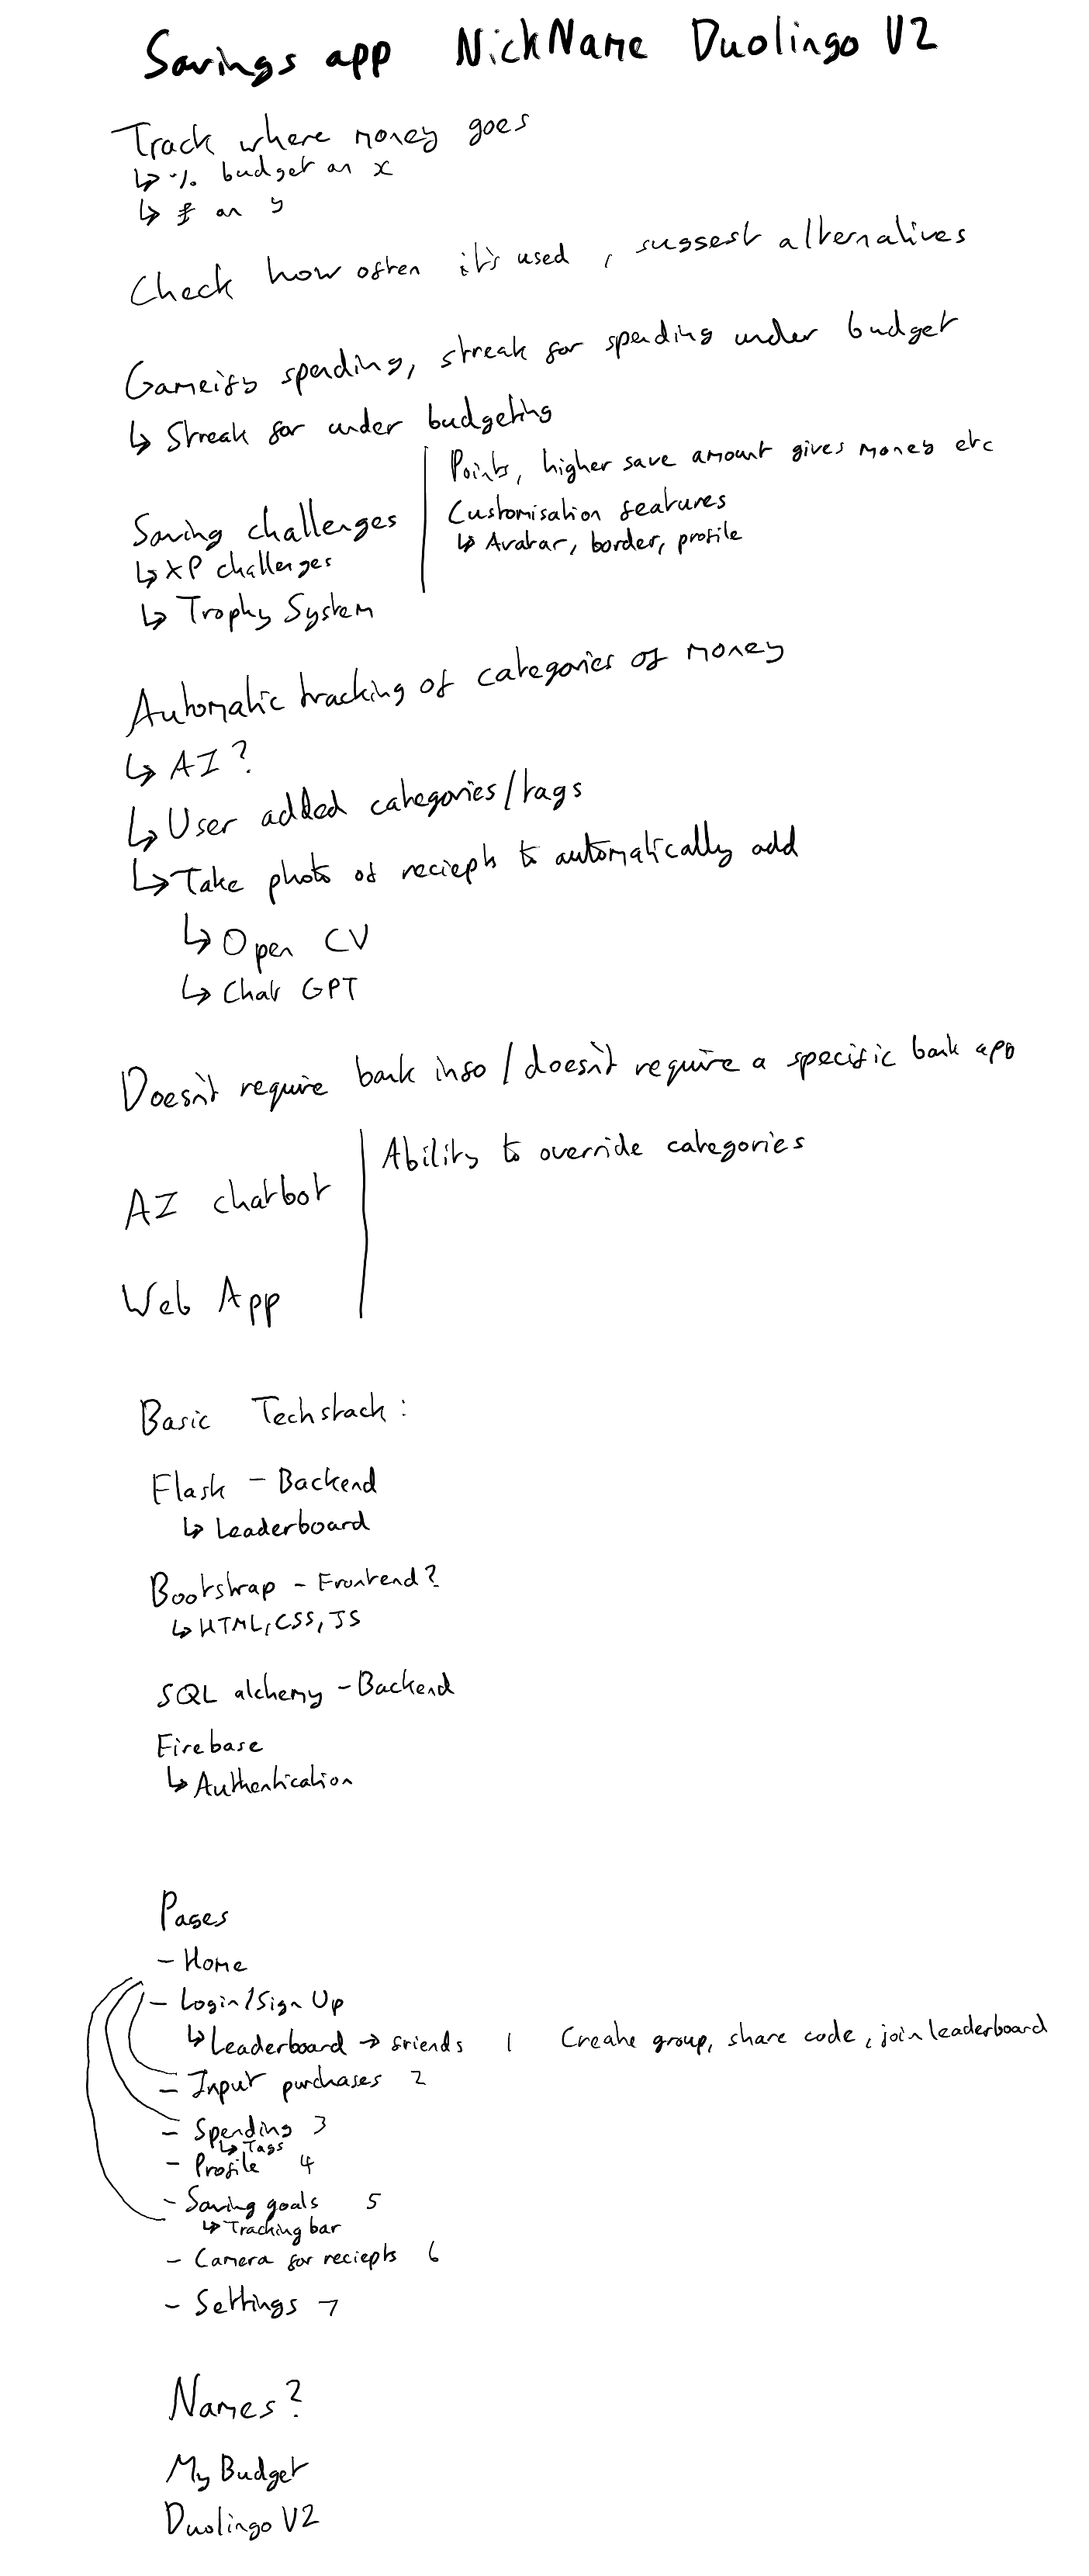 Savings app NickName Duolingo V2
Track where money goes
↳ % budget on x
↳ £ on y
Check how often it's used, suggest alternatives
Gameify spending, streak for spending under budget
↳ Streak for under budgeting
Points, higher save amount gives money etc
Customisation features
↳ Avatar, border, profile
Saving challenges
↳ XP challenges
↳ Trophy System
Automatic tracking of categories of money
↳ AI?
↳ User added categories/tags
↳ Take photo of reciepts to automatically add
↳ Open CV
↳ Chat GPT
Doesn't require bank info / doesn't require a specific bank app
Ability to override categories
AI chatbot
Web App
Basic Techstack:
Flask - Backend
↳ Leaderboard
Bootstrap - Frontend?
↳ HTML, CSS, JS
SQL alchemy - Backend
Firebase
↳ Authentication
Pages
- Home
- Login/Sign Up
↳ Leaderboard → friends 1 Create group, share code, join leaderboard
- Input purchases 2
- Spending 3
↳ Tags
- Profile 4
- Saving goals 5
↳ Tracking bar
- Camera for reciepts 6
- Settings 7
Names?
My Budget
Duolingo V2